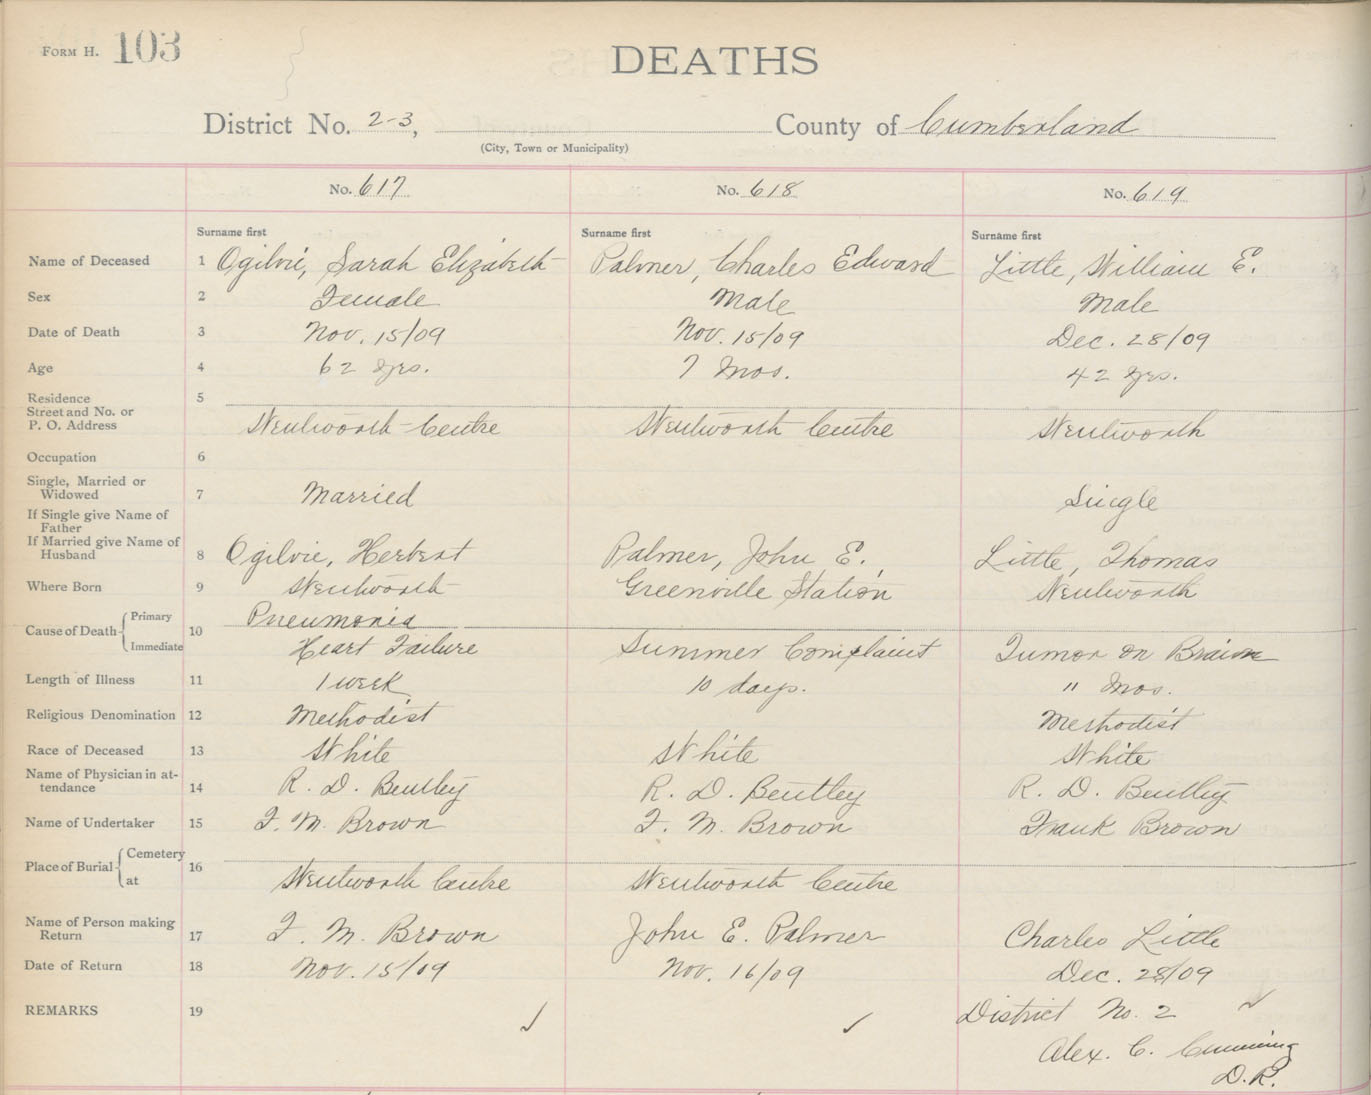 Form H. 103
DEATHS
District No. 2-3, County of Cumberland
(City, Town or Municipality)
No. 617 No. 618 No. 619
Surname first Surname first Surname first
Name of Deceased 1 Ogilvie, Sarah Elizabeth Palmer, Charles Edward Little, William E.
Sex 2 Female Male Male
Date of Death 3 Nov. 15/09 Nov. 15/09 Dec. 28/09
Age 4 62 yrs. 7 Mos. 42 yrs.
Residence 5
Street and No. or
P. O. Address Wentworth Centre Wentworth Centre Wentworth
Occupation 6
Single, Married or
Widowed 7 Married Single
If Single give Name of
Father
If Married give Name of
Husband 8 Ogilvie, Herbert Palmer, John E. Little, Thomas
Where Born 9 Wentworth Greenville Station Wentworth
Cause of Death Primary 10 Pneumonia
Immediate Heart Failure Summer Complaint Tumor on Brain
Length of Illness 11 1 week 10 days. 11 Mos.
Religious Denomination 12 Methodist Methodist
Race of Deceased 13 White White White
Name of Physician in at-
tendance 14 R. D. Bentley R. D. Bentley R. D. Bentley
Name of Undertaker 15 F. M. Brown F. M. Brown Frank Brown
Place of Burial Cemetery 16
at Wentworth Centre Wentworth Centre
Name of Person making
Return 17 F. M. Brown John E. Palmer Charles Little
Date of Return 18 Nov. 15/09 Nov. 16/09 Dec. 28/09
REMARKS 19 ✓ ✓ District No. 2 ✓
Alex. C. Cumming
D.R.